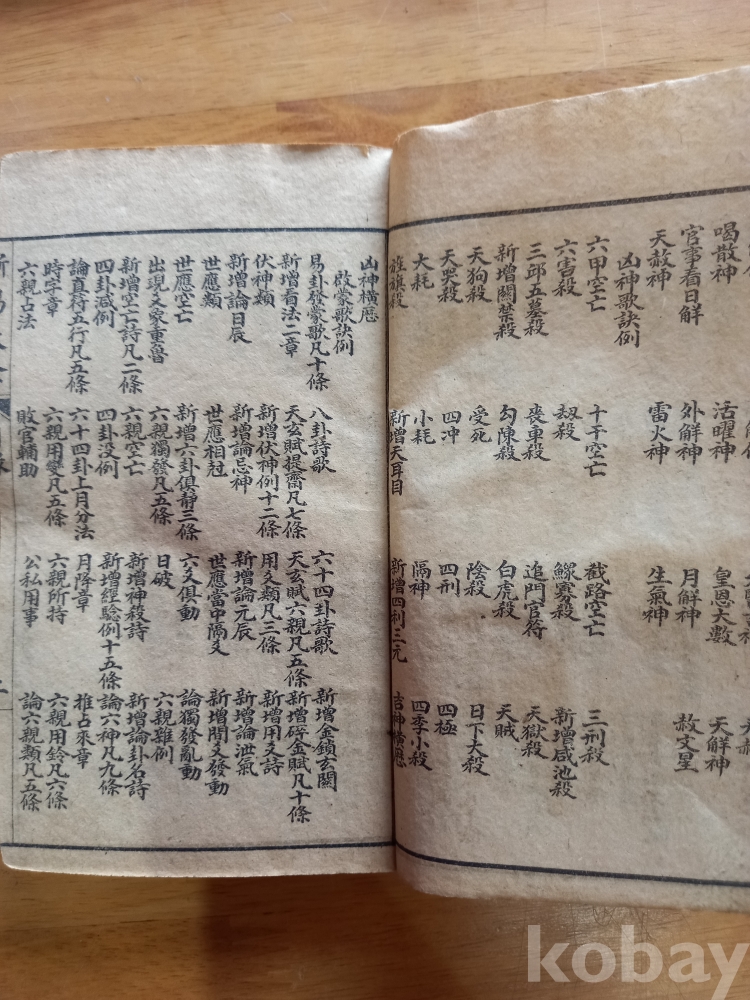 喝散神 活曜神 皇恩大數 天解神
官事看日解 外解神 月解神 赦文星
天赦神 雷火神 生氣神
凶神歌訣例
六甲空亡 十干空亡 截路空亡 三刑殺
六害殺 劫殺 鰥寡殺 新增咸池殺
三邱五墓殺 喪車殺 追門官符 天獄殺
新增關禁殺 勾陳殺 白虎殺 天賊
天狗殺 受死 陰殺 日下大殺
天哭殺 四冲 四刑 四極
大耗 小耗 隔神 四季小殺
旌旗殺 新增天耳目 新增四利三元 吉神橫歷
凶神橫歷
啟蒙歌訣例
易卦發蒙歌凡十條 八卦詩歌 六十四卦詩歌 新增金鎖玄關
新增看法二章 天玄賦提齋凡七條 天玄賦六親凡五條 新增碎金賦凡十條
伏神類 新增伏神例十二條 用爻類凡三條 新增用爻詩
新增論日辰 新增論忌神 新增論元辰 新增論泄氣
世應類 世應相尅 世應當中隔爻 新增間爻發動
世應空亡 新增六卦俱靜三條 六爻俱動 論獨發亂動
出現爻象重疊 六親獨發凡五條 日破 六親雜例
新增空亡詩凡二條 六親空亡 新增神殺詩 新增論卦名詩
四卦減例 四卦沒例 新增經驗例十五條 論六神凡九條
論直符五行凡五條 六十四卦上月分法 月降章 推占來章
時字章 六親用變凡五條 六親所持 六親用鈴凡六條
六親占法 敗官輔助 公私用事 論六親類凡五條
kobay